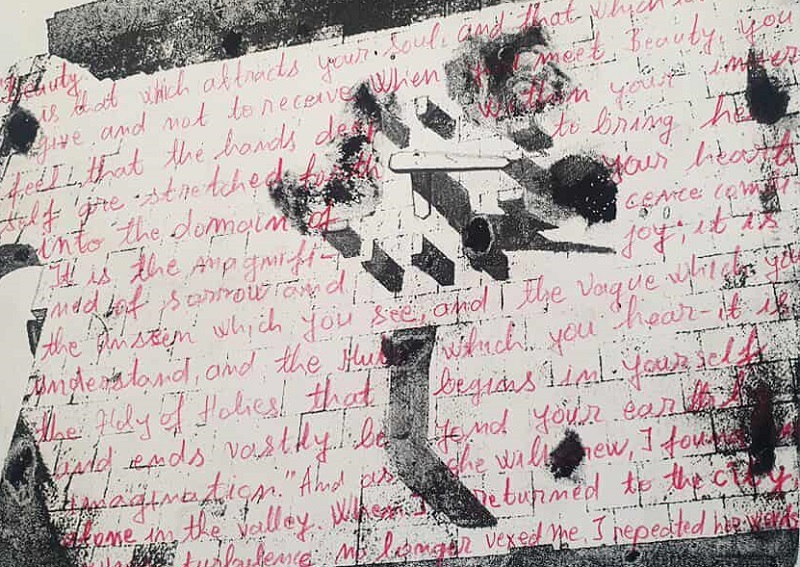 Beauty
is that which attracts your soul, and that which
give and not to receive. When meet Beauty, you
feel that the hands deep within your inner
self are stretched forth to bring he
into the domain of your heart
It is the magnifi- cence combi-
ned of sorrow and joy; it is
the unseen which you see, and the vague which you
understand, and the Mu which you hear - it is
the Holy of Holies that begins in yourself
and ends vastly be yond your earthl
imagination." And as she with rew, I found
alone in the valley. When I returned to the city,
turbulence no longer vexed me, I repeated her words